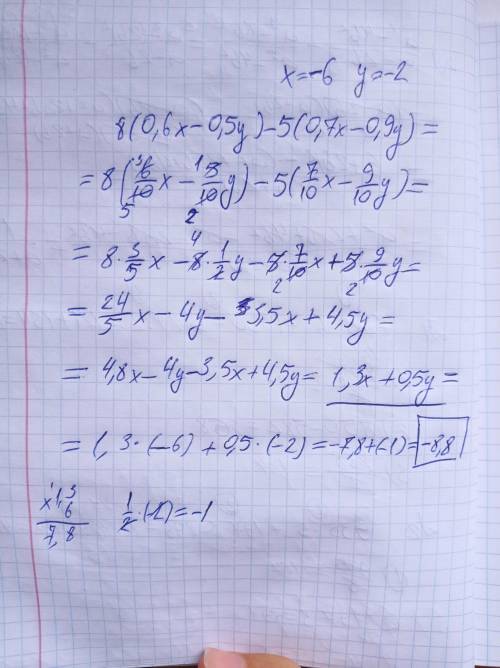 x=-6 y=-2
8(0,6x-0,5y)-5(0,7x-0,9y)=
=8(3/5 x - 1/2 y)-5(7/10 x - 9/10 y)=
=8·3/5 x - 8·1/2 y - 5·7/10 x + 5·9/10 y=
=24/5 x - 4y - 3,5x + 4,5y=
=4,8x-4y-3,5x+4,5y= 1,3x+0,5y=
=1,3·(-6)+0,5·(-2)=-7,8+(-1)=-8,8
x 1,3 1/2·(-2)=-1
6
7,8